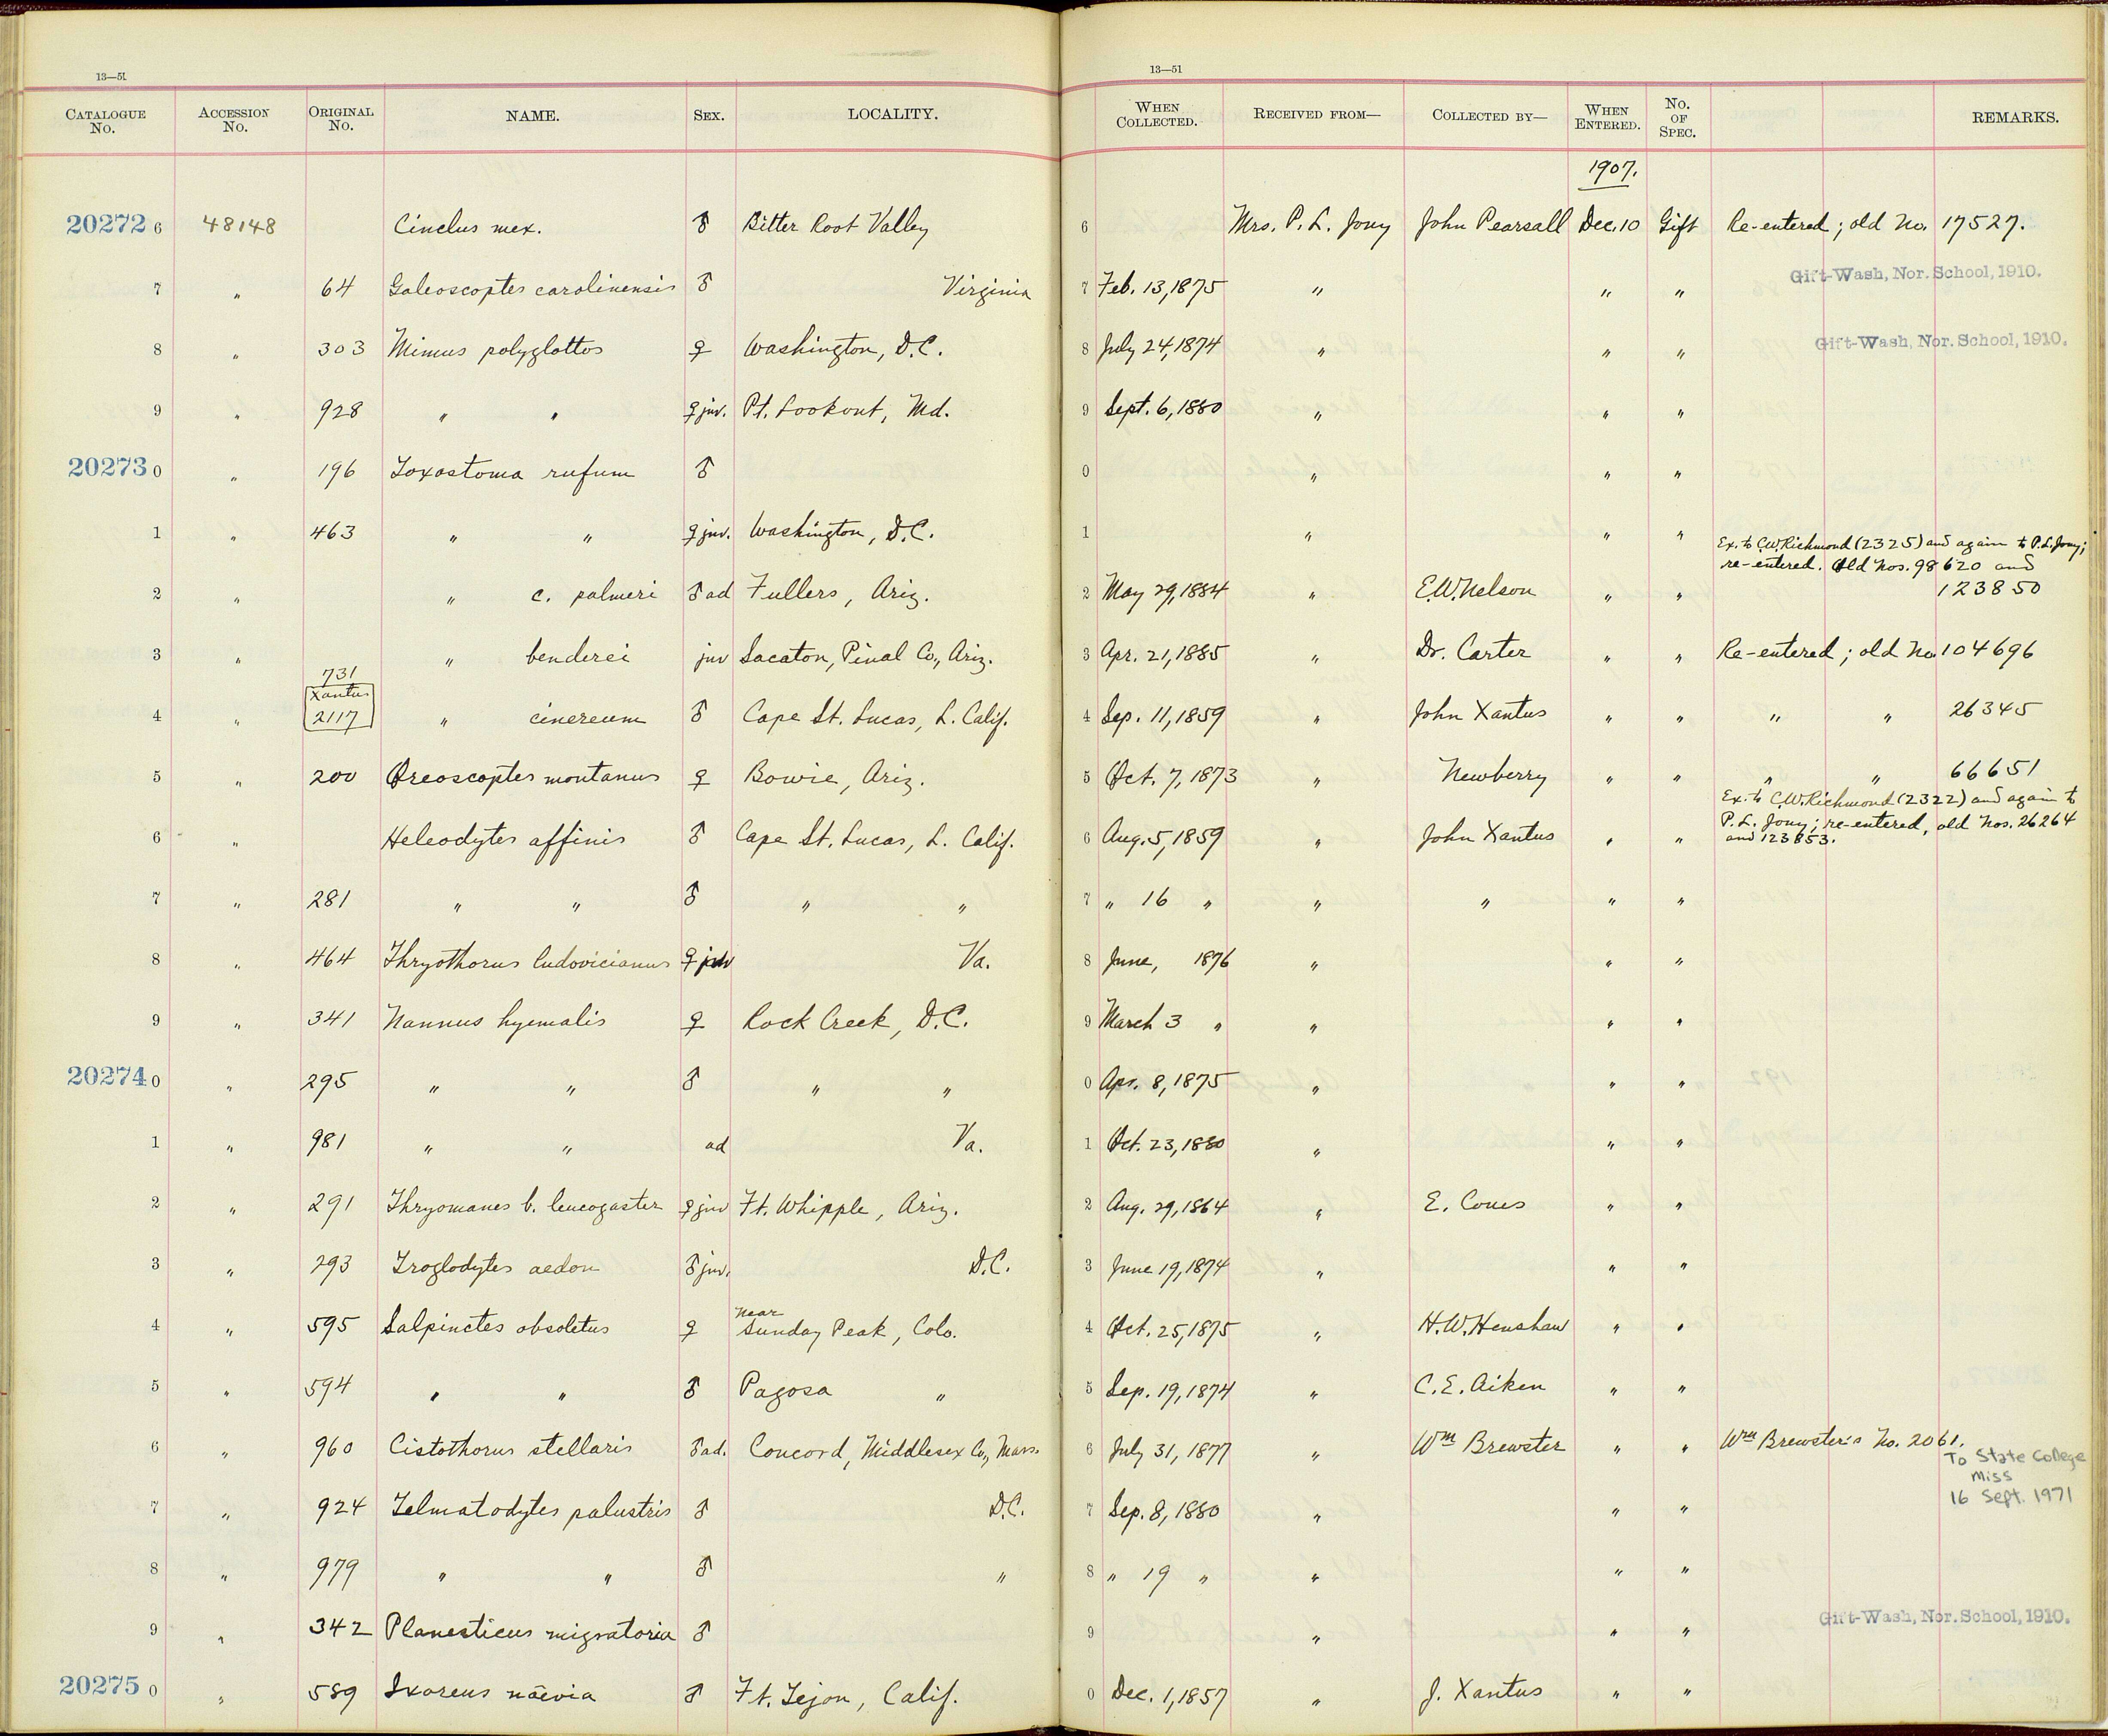 13—51
13—51
CATALOGUE No. ACCESSION No. ORIGINAL No. NAME. SEX. LOCALITY. WHEN COLLECTED. RECEIVED FROM— COLLECTED BY— WHEN ENTERED. No. OF SPEC. REMARKS.
1907.
20272 6 48148 Cinclus mex. ♂ Bitter Root Valley 6 Mrs. P. L. Jouy John Pearsall Dec. 10 Gift Re-entered; old No. 17527.
7 " 64 Galeoscoptes carolinensis ♂ Virginia 7 Feb. 13, 1875 " " " Gift-Wash, Nor. School, 1910.
8 " 303 Mimus polyglottos ♀ Washington, D.C. 8 July 24, 1874 " " " Gift-Wash, Nor. School, 1910.
9 " 928 " " ♀ juv. Pt. Lookout, Md. 9 Sept. 6, 1880 " " "
20273 0 " 196 Toxostoma rufum ♂ 0 " " "
1 " 463 " " ♀ juv. Washington, D.C. 1 " " "
Ex. to C.W. Richmond (2325) and again to P.L. Jouy;
re-entered. Old Nos. 98620 and
2 " " c. palmeri ♂ ad Fullers, Ariz. 2 May 29, 1884 " E.W. Nelson " " 123850
3 " " bendirei juv Sacaton, Pinal Co., Ariz. 3 Apr. 21, 1885 " Dr. Carter " " Re-entered; old No. 104696
731
Xantus
4 " 2117 " cinereum ♂ Cape St. Lucas, L. Calif. 4 Sep. 11, 1859 " John Xantus " " " " 26345
5 " 200 Oreoscoptes montanus ♀ Bowie, Ariz. 5 Oct. 7, 1873 " Newberry " " " " 66651
Ex. to C.W. Richmond (2322) and again to
P. L. Jouy; re-entered, old Nos. 26264
and 123853.
6 " Heleodytes affinis ♂ Cape St. Lucas, L. Calif. 6 Aug. 5, 1859 " John Xantus " "
7 " 281 " " ♂ " " 7 " 16 " " " " "
8 " 464 Thryothorus ludovicianus ♀ juv Va. 8 June, 1876 " " "
9 " 341 Nannus hyemalis ♀ Rock Creek, D.C. 9 March 3 " " " "
20274 0 " 295 " " ♂ " " 0 Apr. 8, 1875 " " "
1 " 981 " " ad Va. 1 Oct. 23, 1880 " " "
2 " 291 Thryomanes b. leucogaster ♀ juv Ft. Whipple, Ariz. 2 Aug. 29, 1864 " E. Coues " "
3 " 293 Troglodytes aedon ♂ juv. D.C. 3 June 19, 1874 " " "
near
4 " 595 Salpinctes obsoletus ♀ Sunday Peak, Colo. 4 Oct. 25, 1875 " H.W. Henshaw " "
5 " 594 " " ♂ Pagosa " 5 Sep. 19, 1874 " C.E. Aiken " "
6 " 960 Cistothorus stellaris ♂ ad. Concord, Middlesex Co., Mass. 6 July 31, 1877 " Wm Brewster " " Wm Brewster's No. 2061.
To State College
Miss
16 Sept. 1971
7 " 924 Telmatodytes palustris ♂ D.C. 7 Sep. 8, 1880 " " "
8 " 979 " " ♂ " 8 " 19 " " " "
9 " 342 Planesticus migratoria ♂ 9 " " " Gift-Wash, Nor. School, 1910.
20275 0 " 589 Ixoreus naevia ♂ Ft. Tejon, Calif. 0 Dec. 1, 1857 " J. Xantus " "